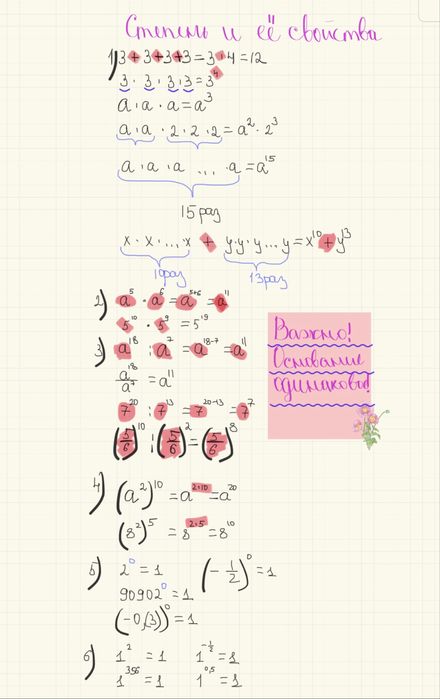 Степень и её свойства
1) 3+3+3+3=3·4=12
3·3·3·3=3⁴
a·a·a=a³
a·a·2·2·2=a²·2³
a·a·a ... ·a=a¹⁵
15 раз
x·x·...·x + y·y·y...y=x¹⁰+y¹³
10раз 13раз
2) a⁵·a⁶=a⁵⁺⁶=a¹¹
5¹⁰·5⁹=5¹⁹
3) a¹⁸:a⁷=a¹⁸⁻⁷=a¹¹
a¹⁸/a⁷=a¹¹
7²⁰:7¹³=7²⁰⁻¹³=7⁷
(5/6)¹⁰:(5/6)²=(5/6)⁸
Важно!
Основание
одинаково!
4) (a²)¹⁰=a²·¹⁰=a²⁰
(8²)⁵=8²·⁵=8¹⁰
5) 2⁰=1 (-1/2)⁰=1
90902⁰=1
(-0,(3))⁰=1
6) 1²=1 1^(-1/2)=1
1³⁵⁶=1 1^0,5=1